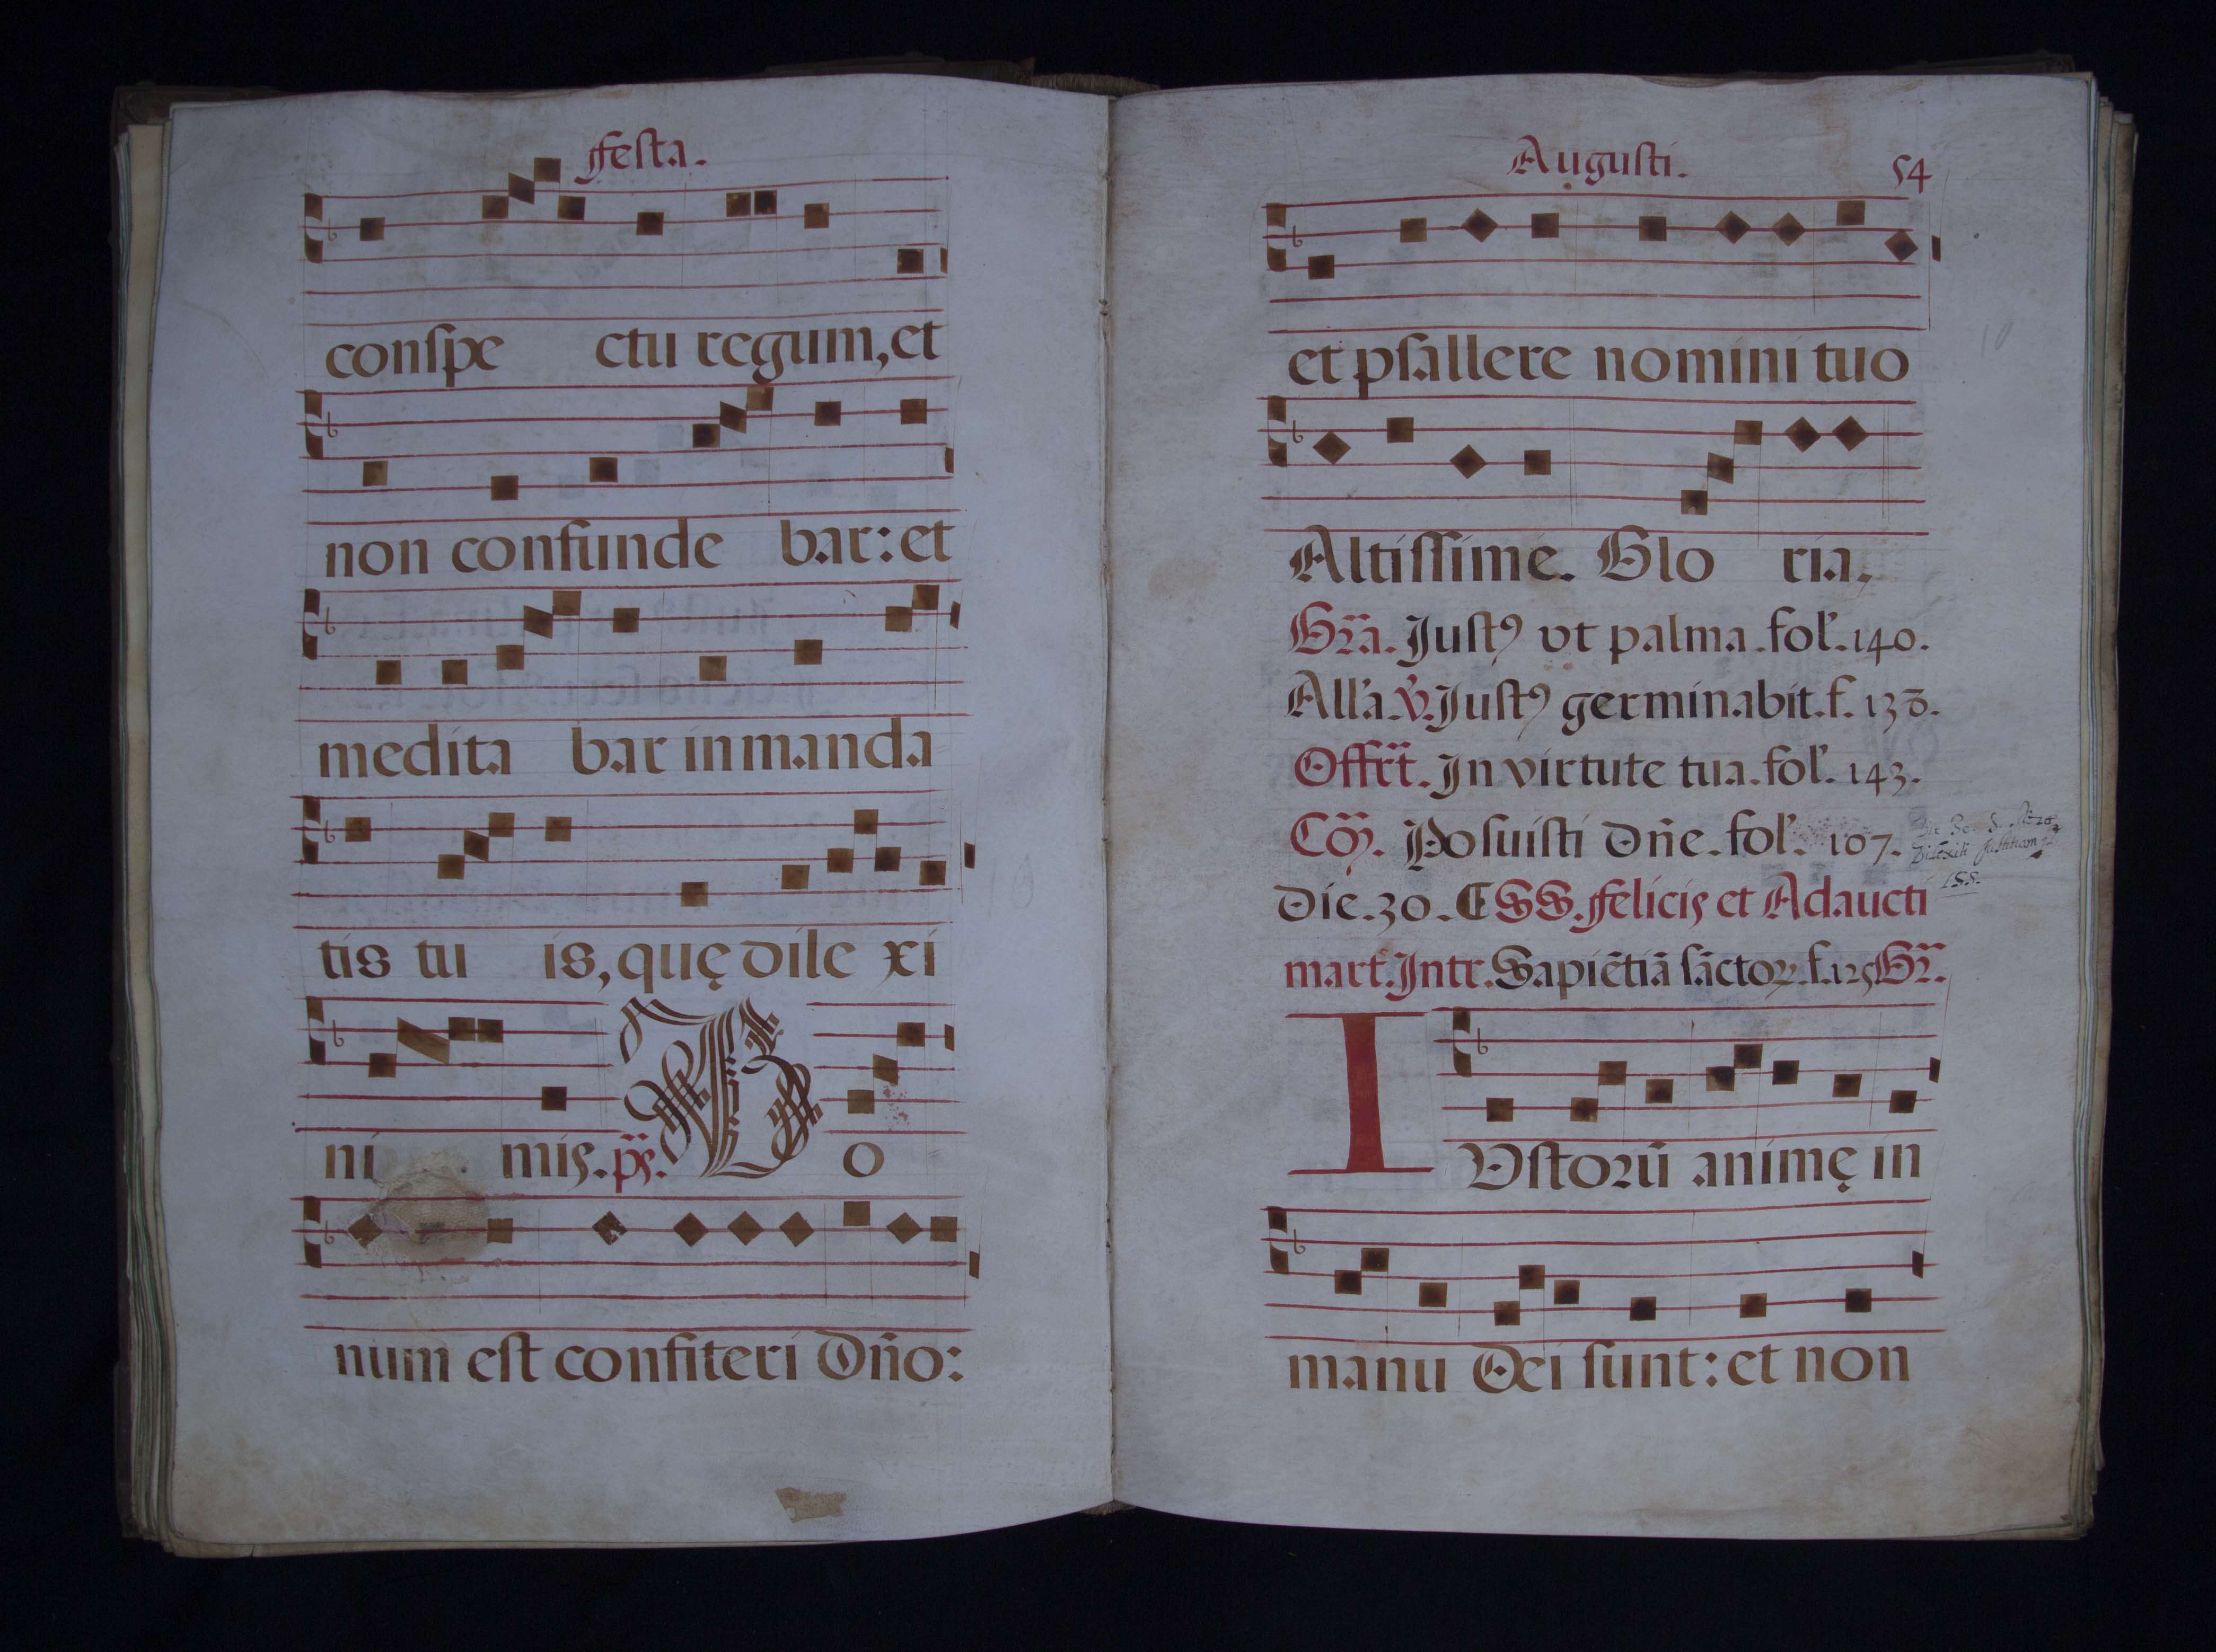 Festa.
conspe ctu regum, et
non confunde bar: et
medita bar in manda
tis tu is, quę dile xi
ni mis. ps. B o
num est confiteri Dño:
Augusti. 54
et psallere nomini tuo
Altissime. Glo ria.
Gra. Justꝰ vt palma. fol. 140.
All'a. ℣. Justꝰ germinabit. f. 138.
Offrt. In virtute tua. fol. 143.
Cõ. Posuisti Dñe. fol. 107.
Dilexisti justitiam
155.
Die. 30. SS. Felicis et Adaucti
mart. Intr. Sapiẽtiã sãctoꝝ. f. 125 Gr.
I Vstorũ animę in
manu Dei sunt: et non